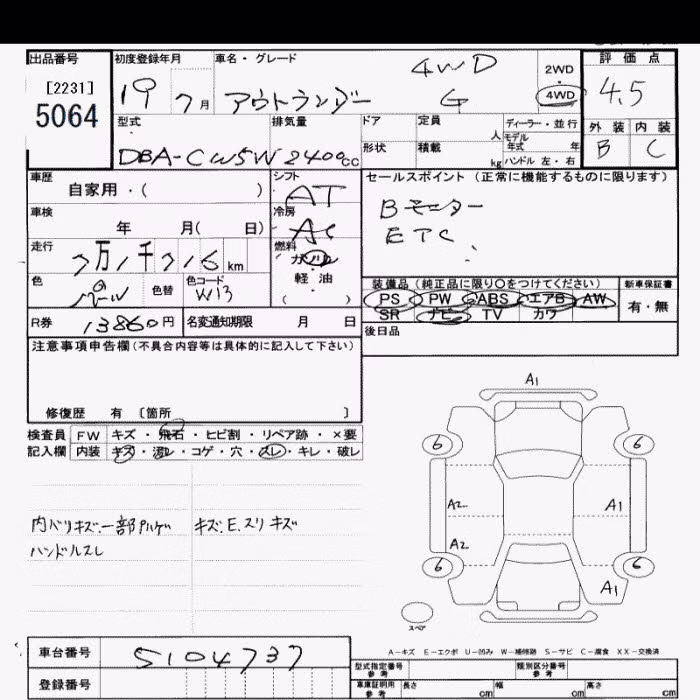 出品番号 初度登録年月 車名・グレード 評価点
[2231]
5064
19 7月 アウトランダー 4WD G 2WD 4WD 4.5
型式 排気量 ドア 定員 人 ディーラー・並行 外装 内装
DBA-CW5W 2400cc 形状 積載 kg モデル年式 年 ハンドル 左・右 B C
車歴 シフト セールスポイント(正常に機能するものに限ります)
自家用・( ) AT Bモニター
車検 冷房 ETC
年 月( 日) AC
走行 燃料
7万1千716km ガソリン
色 パール 色替 色コード W13 軽油 ( )
装備品(純正品に限り○をつけてください) 新車保証書
PS PW ABS エアB AW 有・無
SR ナビ TV カワ
R券 13860円 名変通知期限 月 日 後日品
注意事項申告欄(不具合内容等は具体的に記入して下さい)
修復歴 有 〔箇所 〕
検査員 FW キズ・飛石・ヒビ割・リペア跡・×要
記入欄 内装 キズ・汚レ・コゲ・穴・スレ・キレ・破レ
内ハリキズ.一部 キズ.E.スリキズ
ハンドルスレ
A1
6 6
A2 A1
A2
6 6
A1
スペア
A-キズ E-エクボ U-凹み W-補修跡 S-サビ C-腐食 XX-交換済
車台番号 5104737
登録番号
型式指定番号 参考 類別区分番号 参考
車庫証明用 参考 長さ cm 幅 cm 高さ cm